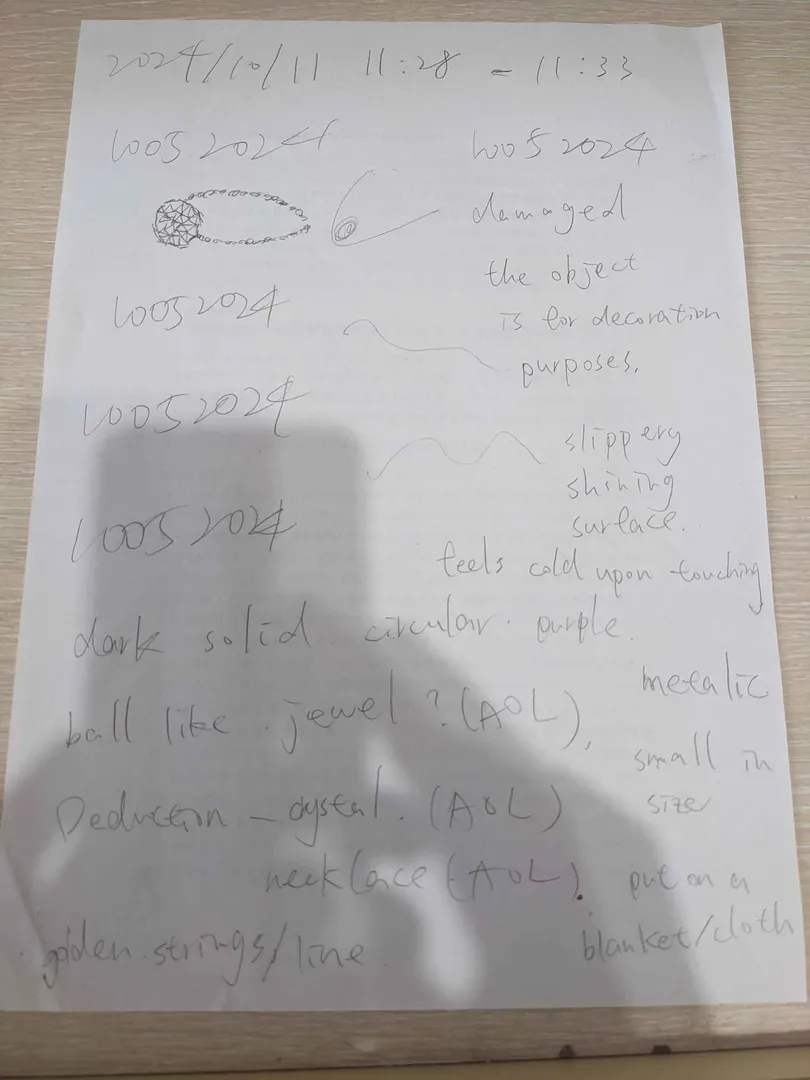 2024/10/11 11:28 - 11:33
10052024
10052024
damaged
the object
is for decoration
purposes.
10052024
10052024
slippery
shining
surface.
10052024
feels cold upon touching
dark solid. circular. purple.
metalic
ball like. jewel? (AOL),
small in
size
Deduction - crystal. (AOL)
necklace (AOL).
put on a
blanket/cloth
golden strings/line